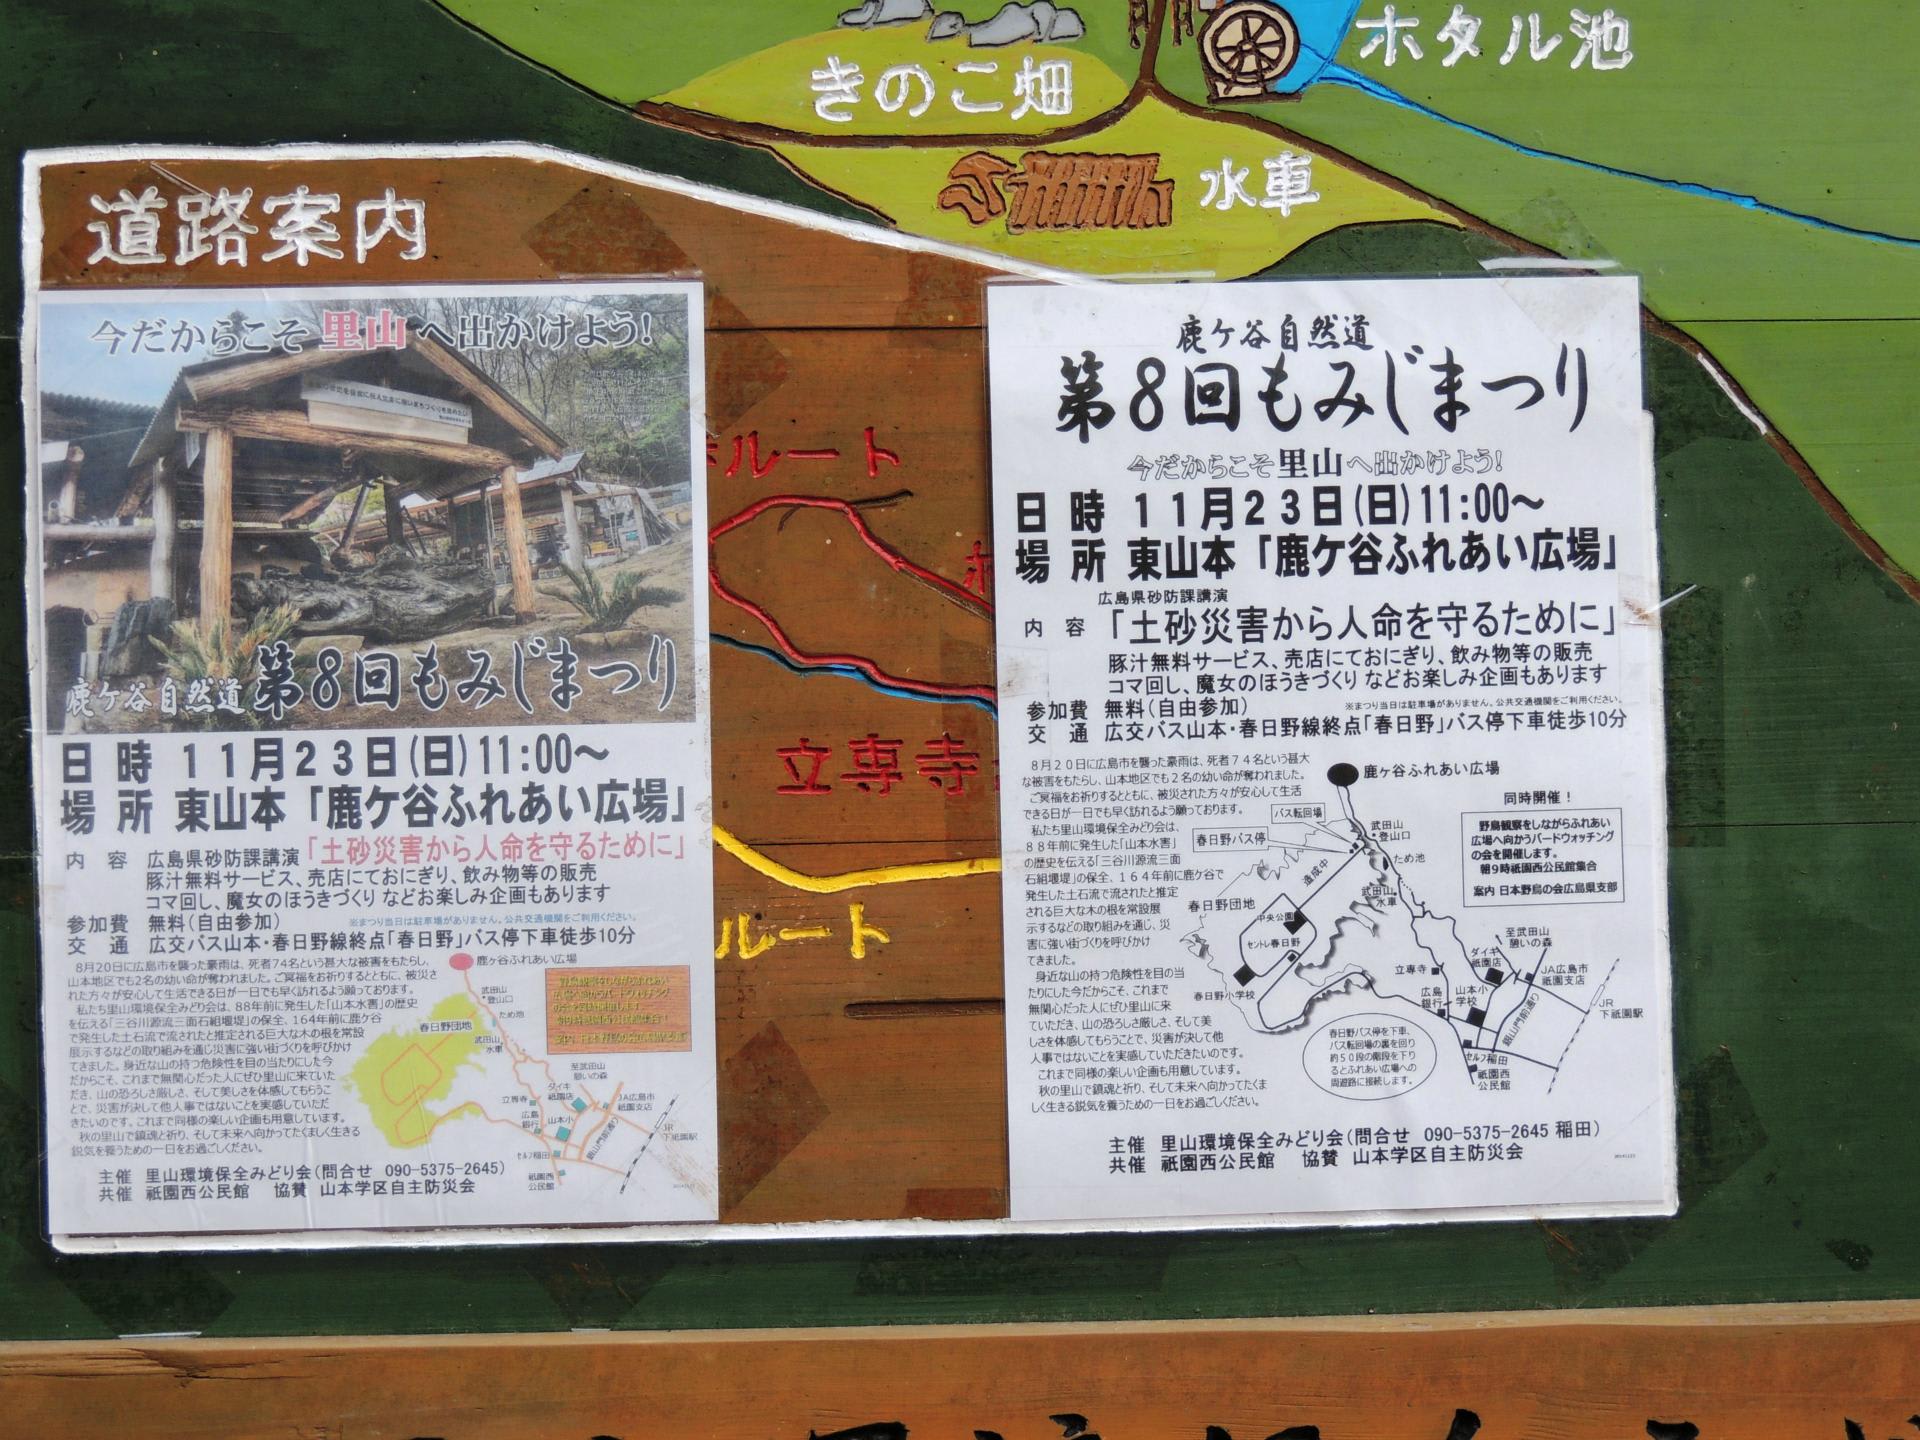 ホタル池
きのこ畑
水車
道路案内
今だからこそ 里山 へ出かけよう!
鹿ケ谷自然道 第8回もみじまつり
日 時 11月23日(日)11:00～
場 所 東山本「鹿ケ谷ふれあい広場」
内 容 広島県砂防課講演「土砂災害から人命を守るために」
豚汁無料サービス、売店にておにぎり、飲み物等の販売
コマ回し、魔女のほうきづくり などお楽しみ企画もあります
参加費 無料(自由参加) ※まつり当日は駐車場がありません。公共交通機関をご利用ください。
交 通 広交バス山本・春日野線終点「春日野」バス停下車徒歩10分
8月20日に広島市を襲った豪雨は、死者74名という甚大な被害をもたらし、
山本地区でも2名の幼い命が奪われました。ご冥福をお祈りするとともに、被災さ
れた方々が安心して生活できる日が一日でも早く訪れるよう願っております。
私たち里山環境保全みどり会は、88年前に発生した「山本水害」の歴史
を伝える「三谷川源流三面石組堰堤」の保全、164年前に鹿ケ谷
で発生した土石流で流されたと推定される巨大な木の根を常設
展示するなどの取り組みを通じ災害に強い街づくりを呼びかけ
てきました。身近な山の持つ危険性を目の当たりにした今
だからこそ、これまで無関心だった人にぜひ里山に来ていた
だき、山の恐ろしさ厳しさ、そして美しさを体感してもらうこ
とで、災害が決して他人事ではないことを実感していただ
きたいのです。これまで同様の楽しい企画も用意しています。
秋の里山で鎮魂と祈り、そして未来へ向かってたくましく生きる
鋭気を養うための一日をお過ごしください。
鹿ヶ谷ふれあい広場
武田山
登山口
ため池
春日野団地
武田山
水車
至武田山
憩いの森
ダイキ
祇園店
立専寺
JA広島市
祇園支店
広島
銀行
山本小
JR
下祇園駅
セルフ稲田
銀山門前通り
祇園西
公民館
主催 里山環境保全みどり会(問合せ 090-5375-2645)
共催 祇園西公民館 協賛 山本学区自主防災会
ルート
立専寺
ルート
鹿ケ谷自然道
第8回もみじまつり
今だからこそ 里山 へ出かけよう!
日 時 11月23日(日)11:00～
場 所 東山本「鹿ケ谷ふれあい広場」
広島県砂防課講演
内 容 「土砂災害から人命を守るために」
豚汁無料サービス、売店にておにぎり、飲み物等の販売
コマ回し、魔女のほうきづくり などお楽しみ企画もあります
参加費 無料(自由参加) ※まつり当日は駐車場がありません。公共交通機関をご利用ください。
交 通 広交バス山本・春日野線終点「春日野」バス停下車徒歩10分
8月20日に広島市を襲った豪雨は、死者74名という甚大
な被害をもたらし、山本地区でも2名の幼い命が奪われました。
ご冥福をお祈りするとともに、被災された方々が安心して生活
できる日が一日でも早く訪れるよう願っております。
私たち里山環境保全みどり会は、
88年前に発生した「山本水害」
の歴史を伝える「三谷川源流三面
石組堰堤」の保全、164年前に鹿ケ谷で
発生した土石流で流されたと推定
される巨大な木の根を常設展
示するなどの取り組みを通じ、災
害に強い街づくりを呼びかけ
てきました。
身近な山の持つ危険性を目の当
たりにした今だからこそ、これまで
無関心だった人にぜひ里山に来
ていただき、山の恐ろしさ厳しさ、そして美
しさを体感してもらうことで、災害が決して他
人事ではないことを実感していただきたいのです。
これまで同様の楽しい企画も用意しています。
秋の里山で鎮魂と祈り、そして未来へ向かってたくま
しく生きる鋭気を養うための一日をお過ごしください。
鹿ヶ谷ふれあい広場
バス転回場
春日野バス停
武田山
登山口
ため池
造成中
武田山
水車
春日野団地
中央公園
セントレ春日野
春日野小学校
同時開催!
野鳥観察をしながらふれあい
広場へ向かうバードウォッチング
の会を開催します。
朝9時祇園西公民館集合
案内 日本野鳥の会広島県支部
至武田山
憩いの森
ダイキ
祇園店
立専寺
JA広島市
祇園支店
広島
銀行
山本小
学校
銀山門前通り
JR
下祇園駅
セルフ稲田
祇園西
公民館
春日野バス停を下車、
バス転回場の裏を回り
約50段の階段を下り
るとふれあい広場への
周遊路に接続します。
主催 里山環境保全みどり会(問合せ 090-5375-2645 稲田)
共催 祇園西公民館 協賛 山本学区自主防災会